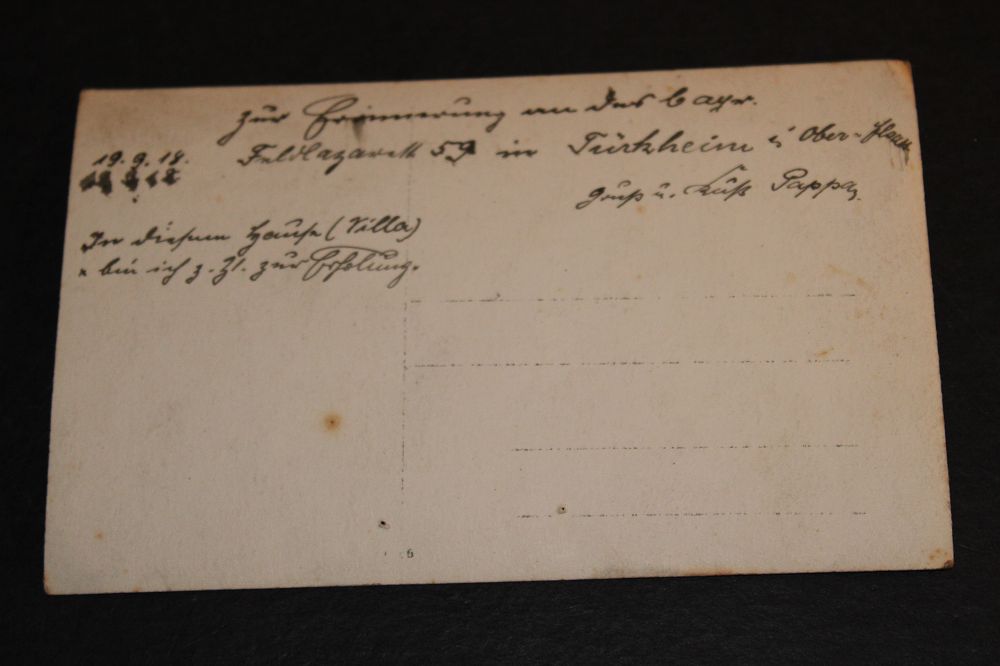 zur Erinnerung an das bayr.
19.9.18. Feldlazarett 59 in Türkheim i Ober-Elsass
Gruß u. Kuß Pappa
In diesem Hause (Villa)
bin ich z. Zt. zur Erholung.